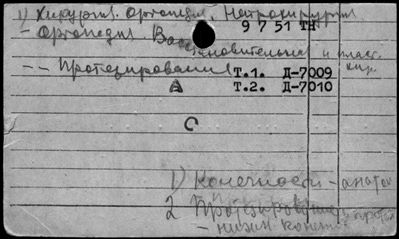 1) Хирургия. Ортопедия. Нейрохирургия
9 7 51 ТН
- Ортопедия Восстановительная и пласт. хир.
-- Протезирование Т.1. Д-7009
Т.2. Д-7010
1) Конечности - анатом
2 Протезирование
- нижн. конечн.